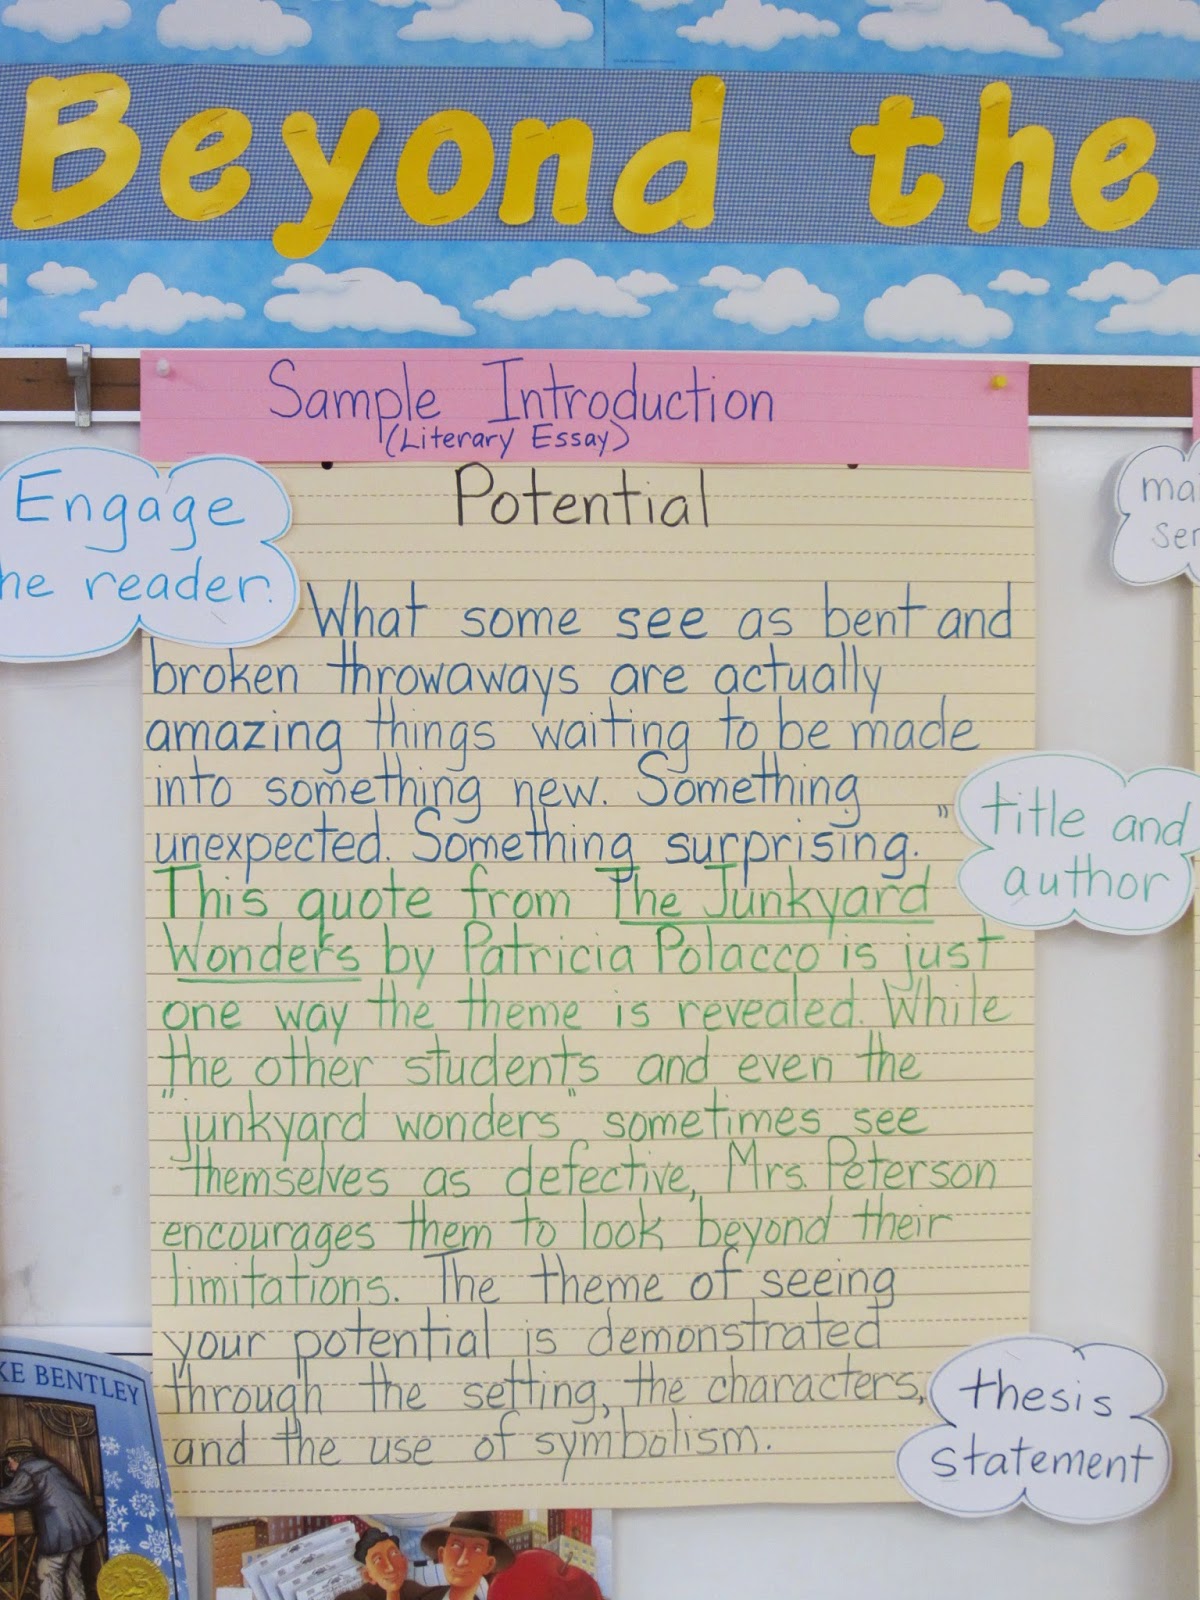 Beyond the
Sample Introduction
(Literary Essay)
Potential
Engage
he reader.
What some see as bent and
broken throwaways are actually
amazing things waiting to be made
into something new. Something
unexpected. Something surprising."
This quote from The Junkyard
Wonders by Patricia Polacco is just
one way the theme is revealed. While
the other students and even the
"junkyard wonders" sometimes see
themselves as defective, Mrs. Peterson
encourages them to look beyond their
limitations. The theme of seeing
your potential is demonstrated
through the setting, the characters,
and the use of symbolism.
title and
author
thesis
statement
KE BENTLEY